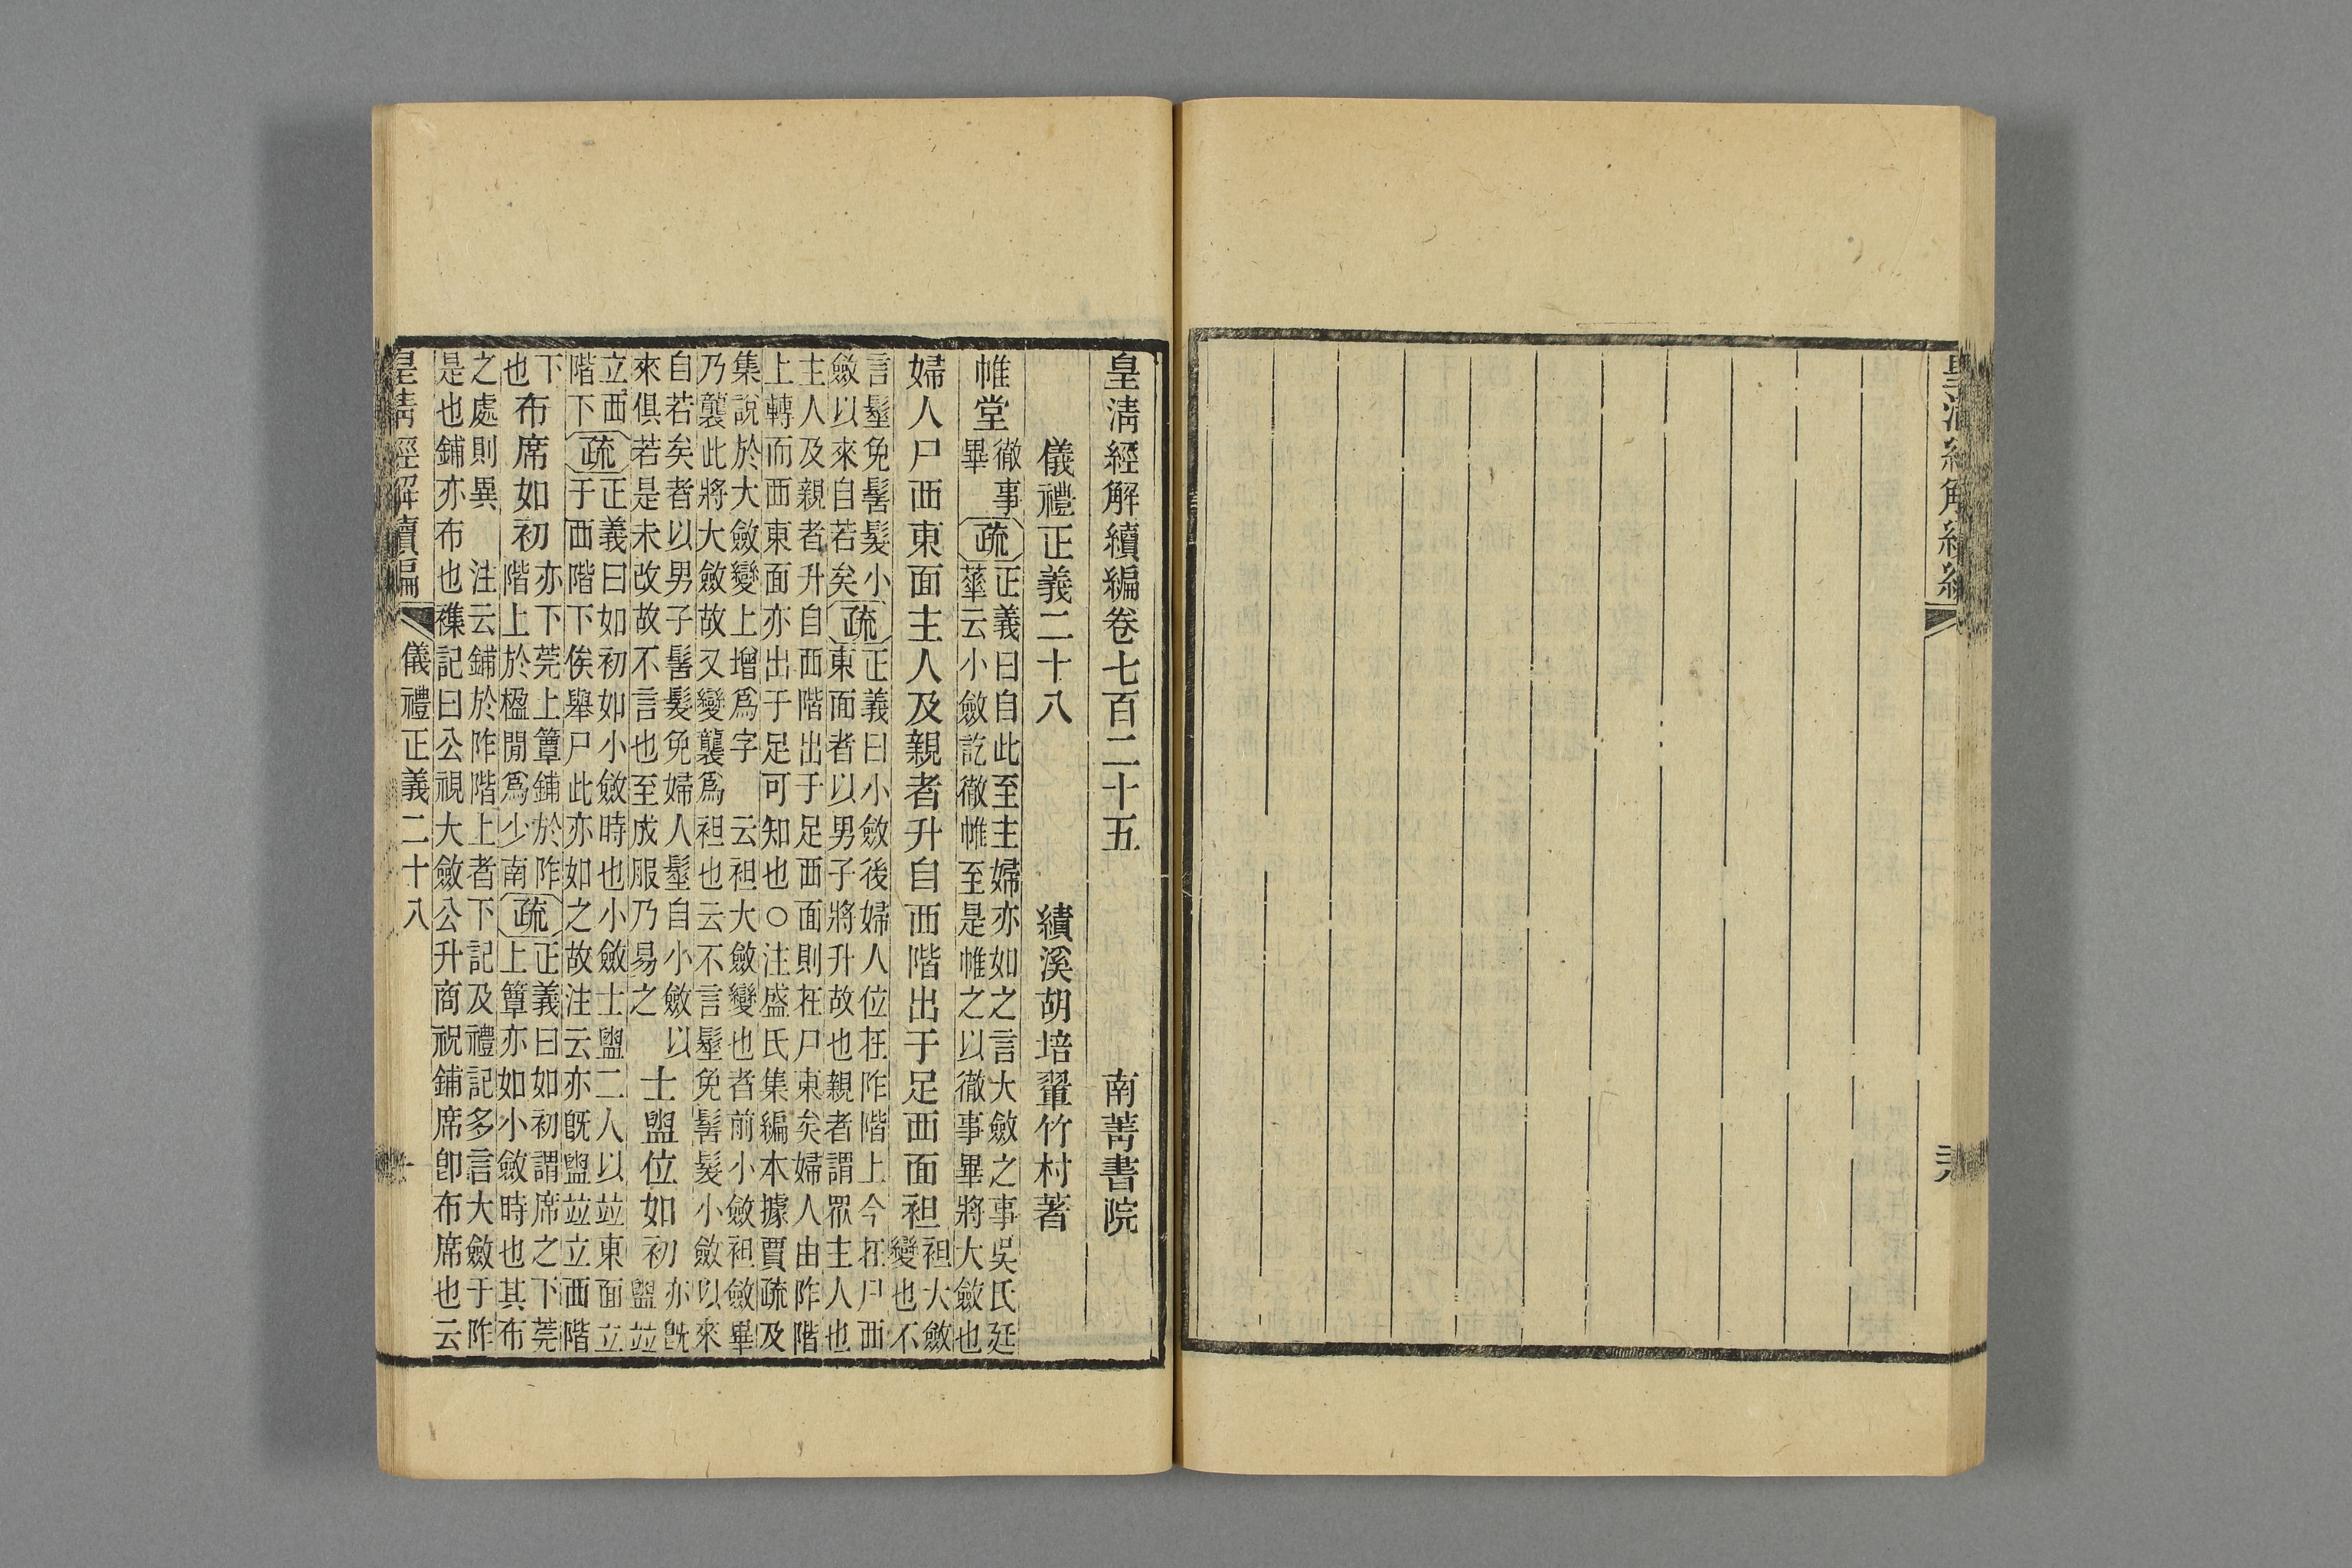 皇清經解續編
皇清經解續編卷七百二十五 南菁書院
儀禮正義二十八 績溪胡培翬竹村著
帷堂
徹事
畢
疏
正義曰自此至主婦亦如之言大斂之事吳氏廷
華云小斂訖徹帷至是帷之以徹事畢將大斂也
婦人尸西東面主人及親者升自西階出于足西面袒
袒大斂
變也不
言髽免髻髮小
斂以來自若矣
疏
正義曰小斂後婦人位在阼階上今在尸西
東面者以男子將升故也親者謂眾主人也
主人及親者升自西階出于足西面則在尸東矣婦人由阼階
上轉而西東面亦出于足可知也○注盛氏集編本據賈疏及
集說於大斂變上增爲字 云袒大斂變也者前小斂袒斂畢
乃襲此將大斂故又變襲爲袒也云不言髽免髻髮小斂以來
自若矣者以男子髻髮免婦人髽自小斂以
來俱若是未改故不言也至成服乃易之
士盥位如初
亦既
盥竝
立西
階下
疏
正義曰如初如小斂時也小斂士盥二人以竝東面立
于西階下俟舉尸此亦如之故注云亦既盥竝立西階
下
也
布席如初
亦下莞上簟鋪於阼
階上於楹閒爲少南
疏
正義曰如初謂席之下莞
上簟亦如小斂時也其布
之處則異 注云鋪於阼階上者下記及禮記多言大斂于阼
是也鋪亦布也襍記曰公視大斂公升商祝鋪席卽布席也云
皇清經解續編 儀禮正義二十八